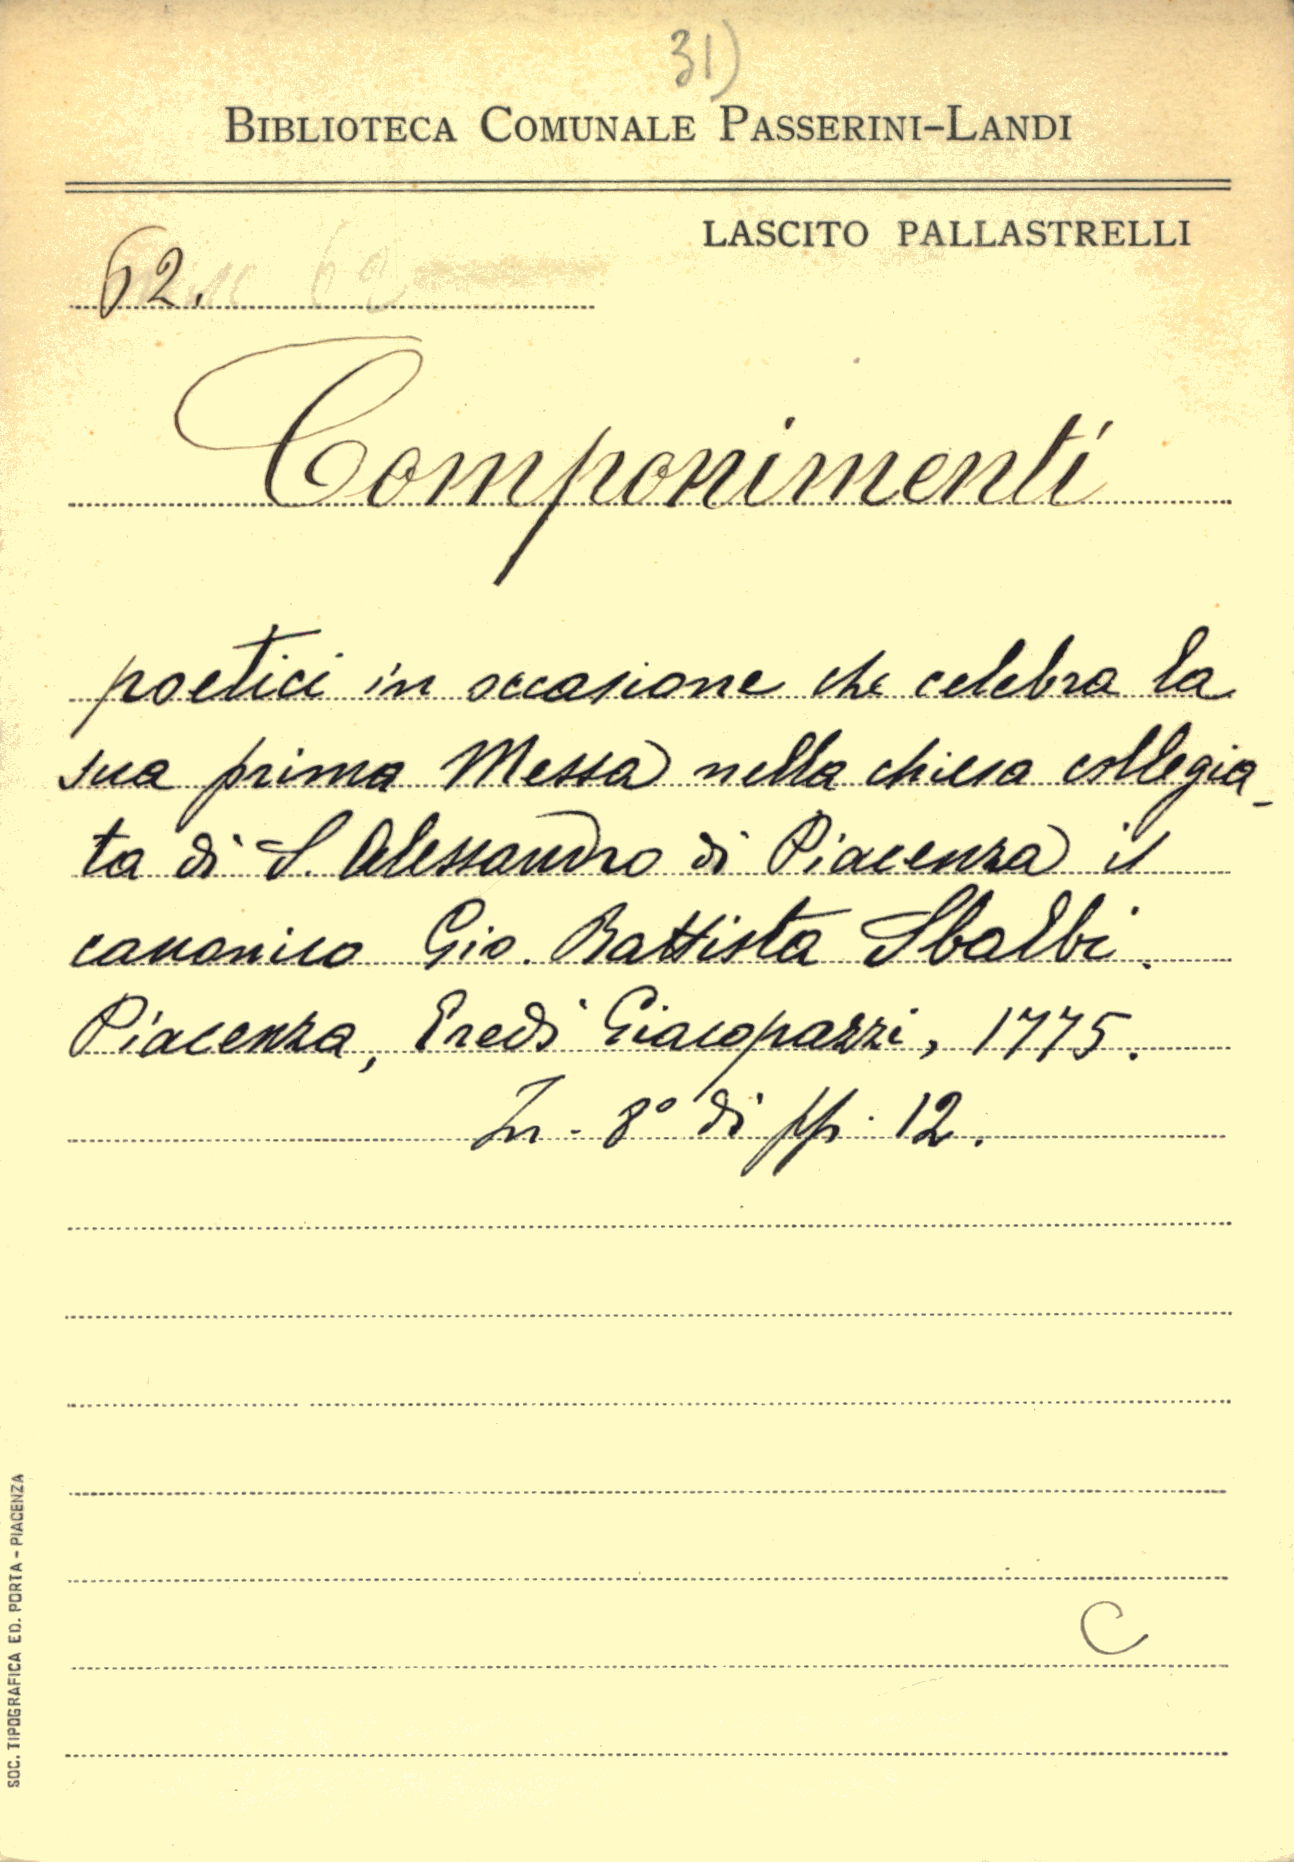 31)
BIBLIOTECA COMUNALE PASSERINI-LANDI
LASCITO PALLASTRELLI
62.
Componimenti
poetici in occasione che celebra la
sua prima Messa nella chiesa collegia-
ta di S. Alessandro di Piacenza il
canonico Gio. Battista Sbalbi.
Piacenza, Eredi Giacopazzi, 1775.
In-8° di pp. 12.
C
SOC. TIPOGRAFICA ED. PORTA - PIACENZA